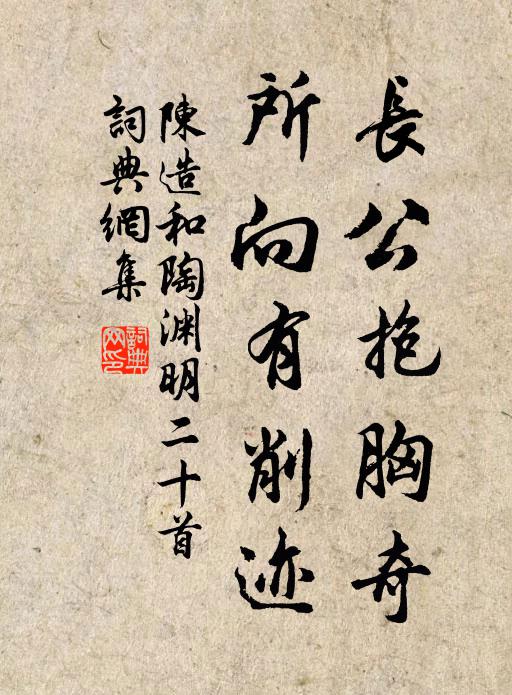 長公抱胸奇
所向有削迹
陳造和陶渊明二十首
詞典網集
詞典網印